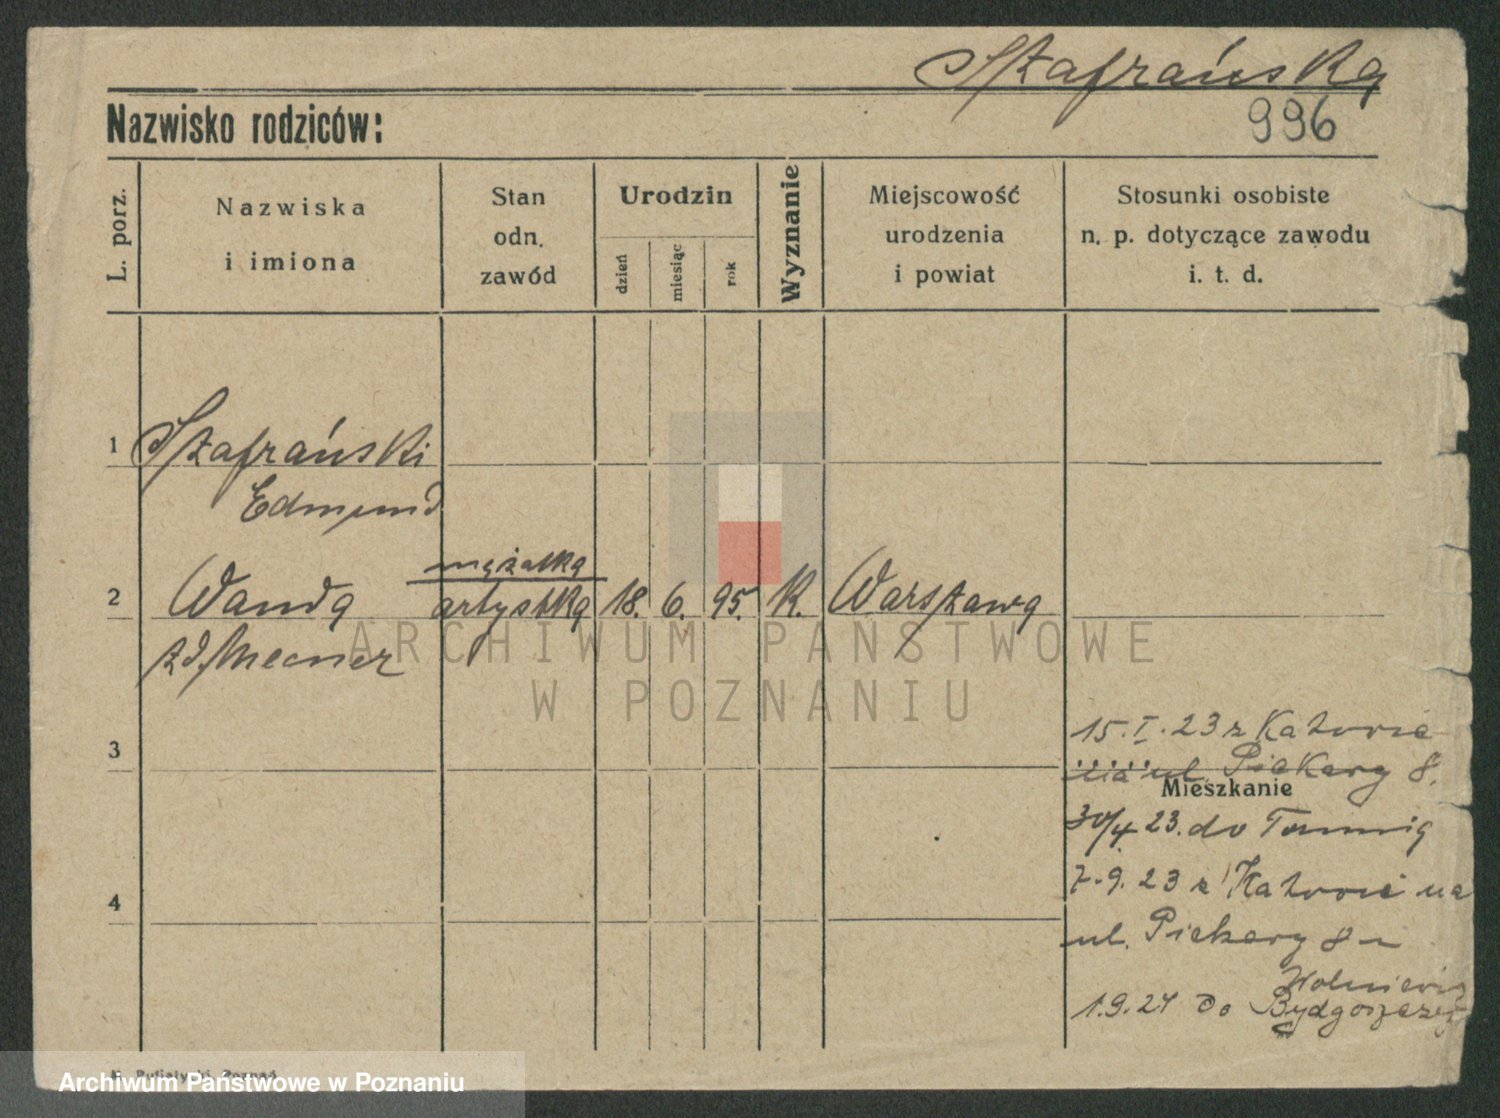 Szafrańska
996
Nazwisko rodziców:
L. porz.
Nazwiska
i imiona
Stan
odn.
zawód
Urodzin
dzień
miesiąc
rok
Wyznanie
Miejscowość
urodzenia
i powiat
Stosunki osobiste
n. p. dotyczące zawodu
i. t. d.
1 Szafrański
Edmund
mężatka
2 Wanda artystka 18. 6. 95. K. Warszawa
zd. Mecner
ARCHIWUM PAŃSTWOWE
W POZNANIU
15. I. 23 z Katowic
3
ul. Piekary 8.
Mieszkanie
30/4 23. do
7. 9. 23 z Katowic na
4
ul. Piekary 8
1.9.24 do Bydgoszczy
Poznań
Archiwum Państwowe w Poznaniu